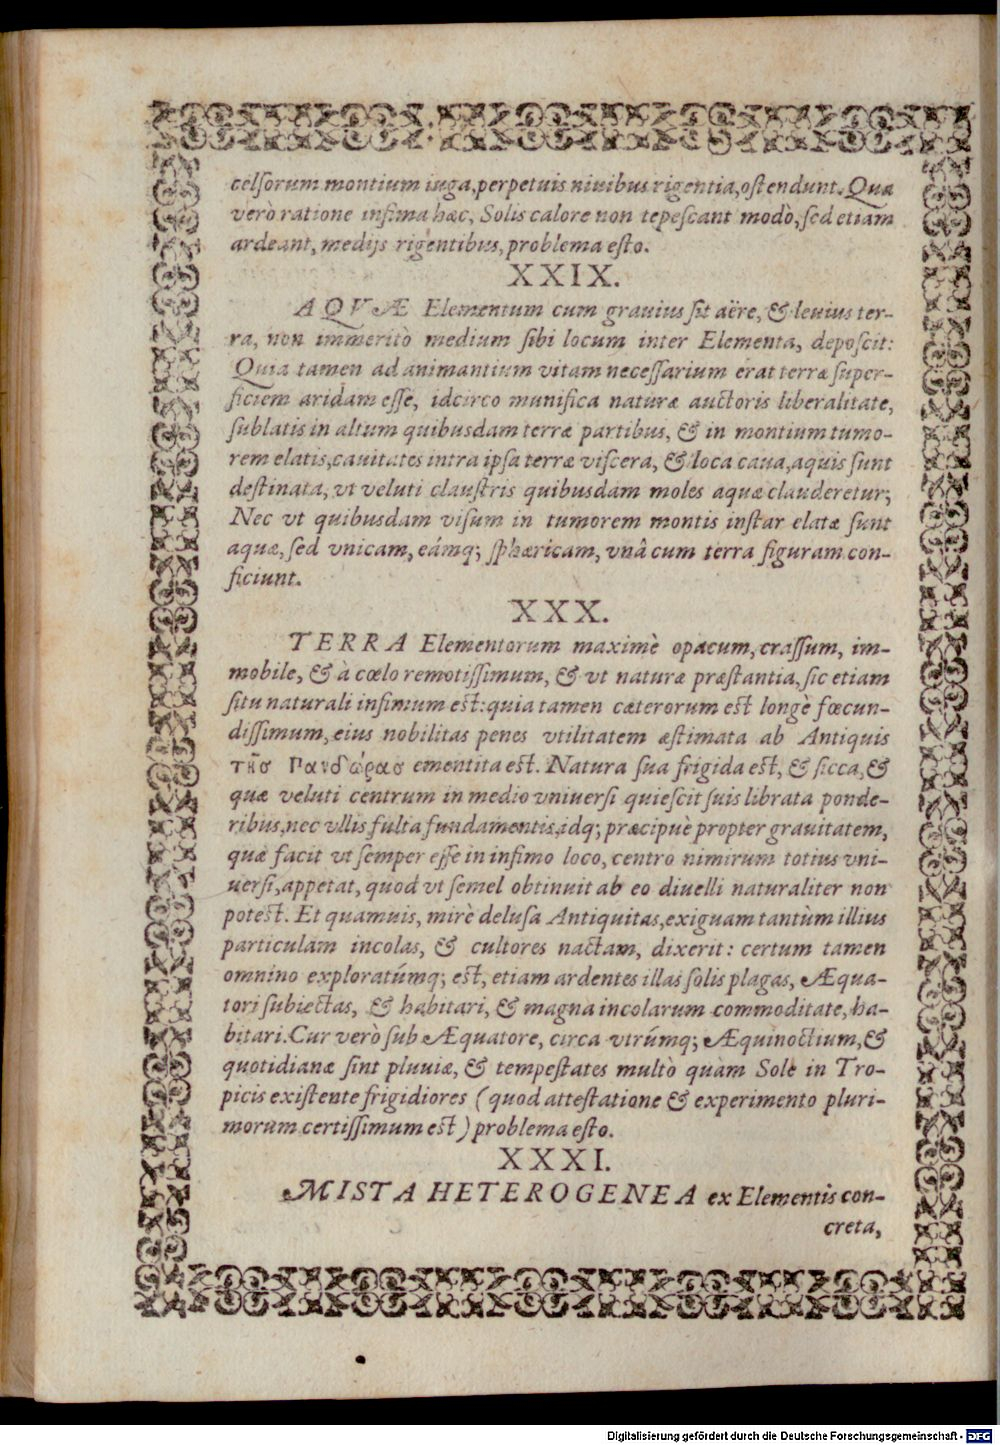 celsorum montium iuga, perpetuis niuibus rigentia, ostendunt. Quæ
verò ratione infima hæc, Solis calore non tepescant modò, sed etiam
ardeant, medijs rigentibus, problema esto.
XXIX.
AQVÆ Elementum cum grauius sit aëre, & leuius ter-
ra, non immeritò medium sibi locum inter Elementa, deposcit:
Quia tamen ad animantium vitam necessarium erat terræ super-
ficiem aridam esse, idcirco munifica naturæ auctoris liberalitate,
sublatis in altum quibusdam terræ partibus, & in montium tumo-
rem elatis, cauitates intra ipsa terræ viscera, & loca caua, aquis sunt
destinata, vt veluti claustris quibusdam moles aquæ clauderetur;
Nec vt quibusdam visum in tumorem montis instar elatæ sunt
aquæ, sed vnicam, eámq; sphæricam, vnâ cum terra figuram con-
ficiunt.
XXX.
TERRA Elementorum maximè opacum, crassum, im-
mobile, & à cœlo remotissimum, & vt naturæ præstantia, sic etiam
situ naturali infimum est: quia tamen cæterorum est longè fœcun-
dissimum, eius nobilitas penes vtilitatem æstimata ab Antiquis
τῆσ Πανδώρασ ementita est. Natura sua frigida est, & sicca, &
quæ veluti centrum in medio vniuersi quiescit suis librata ponde-
ribus, nec vllis fulta fundamentis, idq; præcipuè propter grauitatem,
quæ facit vt semper esse in infimo loco, centro nimirum totius vni-
uersi, appetat, quod vt semel obtinuit ab eo diuelli naturaliter non
potest. Et quamuis, mirè delusa Antiquitas, exiguam tantùm illius
particulam incolas, & cultores nactam, dixerit: certum tamen
omnino exploratúmq; est, etiam ardentes illas solis plagas, Æqua-
tori subiectas, & habitari, & magna incolarum commoditate, ha-
bitari. Cur verò sub Æquatore, circa vtrúmq; Æquinoctium, &
quotidianæ sint pluuiæ, & tempestates multò quàm Sole in Tro-
picis existente frigidiores (quod attestatione & experimento pluri-
morum certissimum est) problema esto.
XXXI.
MISTA HETEROGENEA ex Elementis con-
creta,
Digitalisierung gefördert durch die Deutsche Forschungsgemeinschaft - DFG